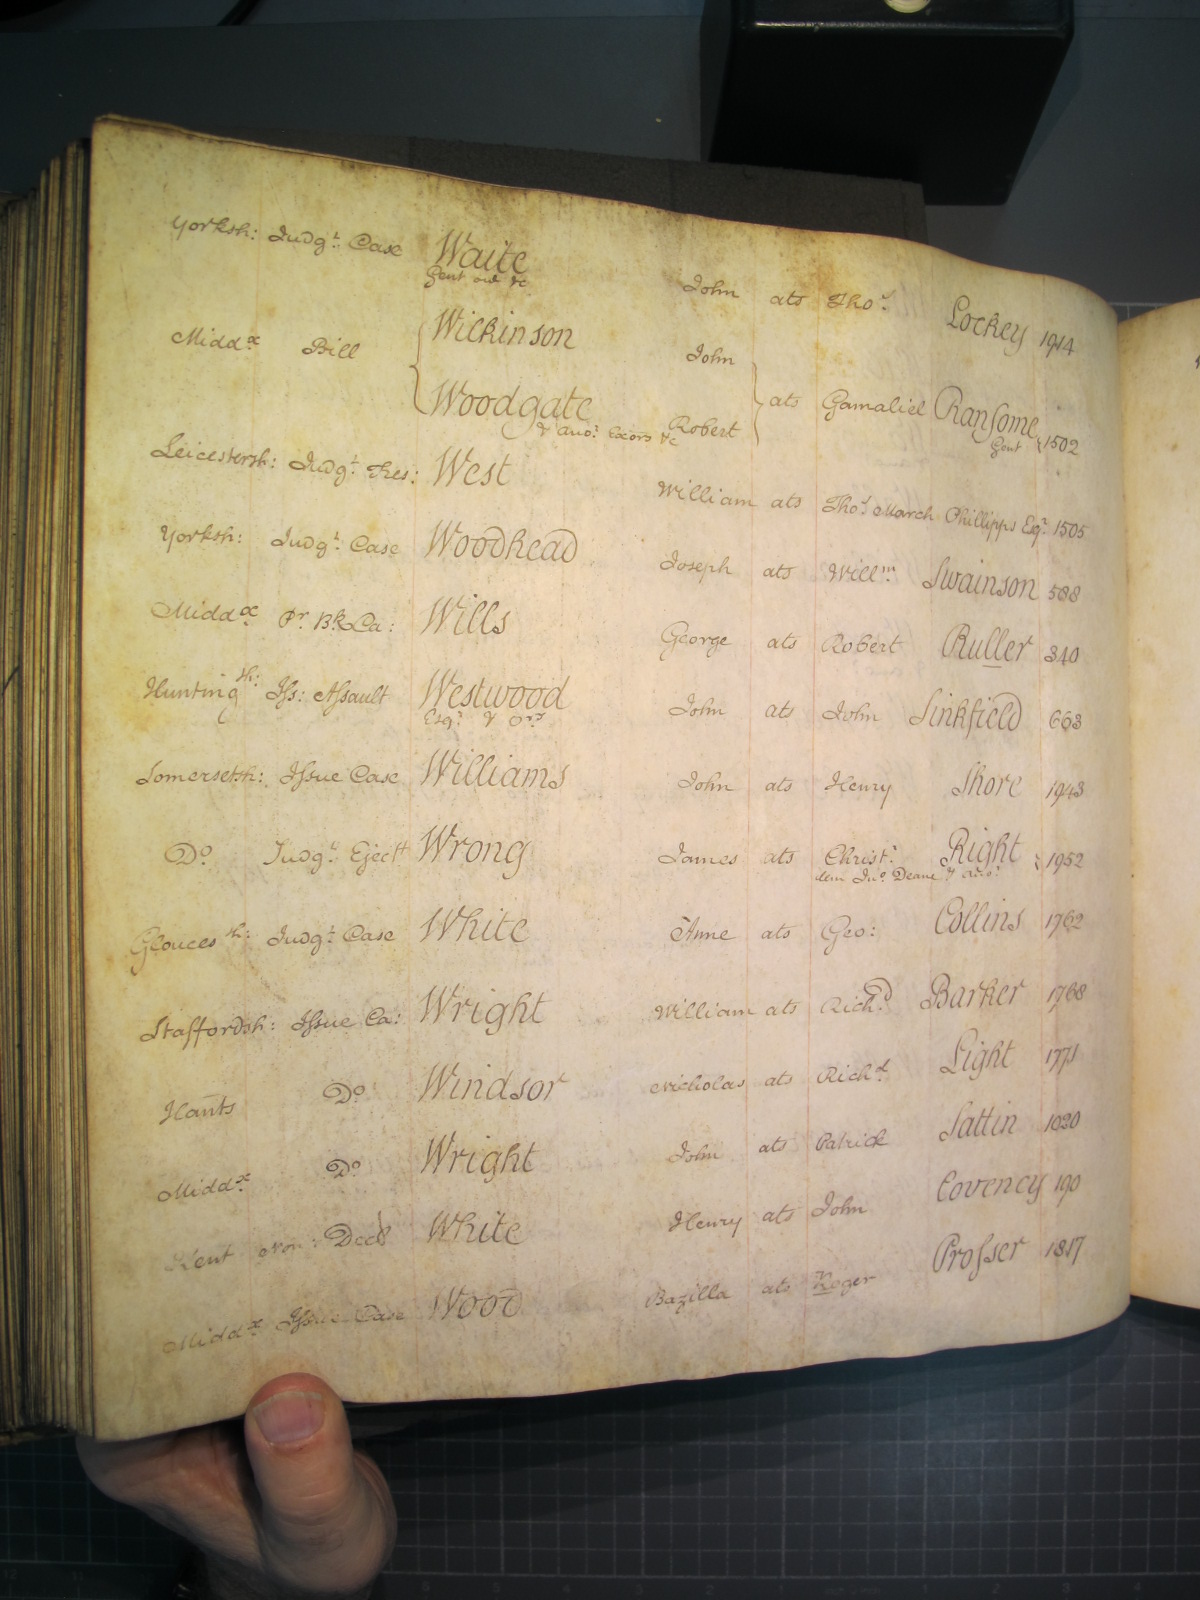 Yorksh: Judgt. Case Waite John ats Thos. Lockey 1914
Gent one &c
Middx. Bill Wilkinson John
Woodgate Robert ats Gamaliel Ransome 1502
& anor. Excors &c Gent
Leicestersh: Judgt. Tres: West William ats Thos. March Phillipps Esqr. 1505
Yorksh: Judgt. Case Woodhead Joseph ats Willm. Swainson 588
Middx. Pr. Bk. Ca: Wills George ats Robert Ruller 340
Huntingsh: Iss: Assault Westwood John ats John Sinkfield 663
Esqr. & Ors
Somersetsh: Issue Case Williams John ats Henry Shore 1943
Do. Judgt. Ejectt Wrong James ats Christr. Right 1952
dem Jno. Deane & anor.
Glouces sh: Judgt. Case White Anne ats Geo: Collins 1762
Staffordsh: Issue Ca: Wright William ats Richd. Barker 1768
Hants Do. Windsor Nicholas ats Richd. Light 1771
Middx. Do. Wright John ats Patrick Sattin 1020
Kent Non: Decl White Henry ats John Covency 190
Middx. Issue Case Wood Bazilla ats Roger Prosser 1817